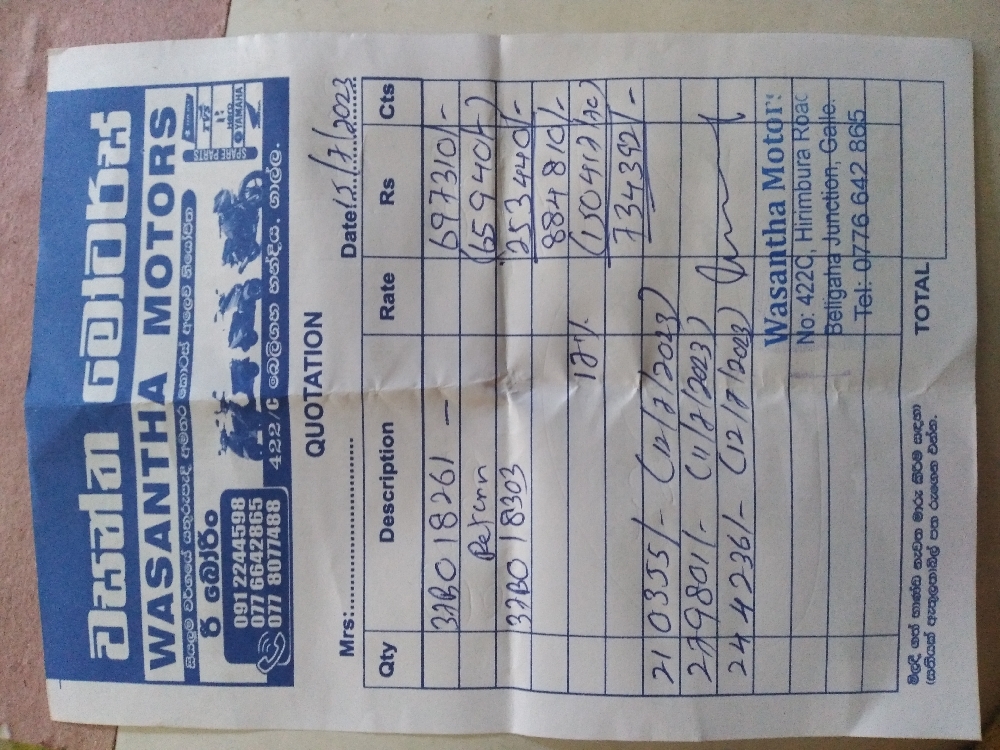 වසන්ත මෝටර්ස්
WASANTHA MOTORS
සියලුම වර්ගයේ යතුරුපැදි අමතර කොටස් අලෙවි නියෝජිත
SPARE PARTS
YAMAHA
රී බෝරිං
091 2244598
077 6642865
077 8077488
422/C බෙලිගහ හන්දිය, ගාල්ල.
QUOTATION
Mrs:................ Date: 15/7/2023
Qty Description Rate Rs Cts
37B018261 — 697310/-
Return (65940/-)
37B018303 253440/-
884810/-
17% (150417/20)
734392/-
210355/- (12/7/2023)
279801/- (11/7/2023)
244236/- (12/7/2023)
Wasantha Motors
No: 422C, Hirimbura Road
Beligaha Junction, Galle.
Tel: 0776 642 865
TOTAL
මිලදී ගත් භාණ්ඩ නැවත මාරු කිරීම සඳහා